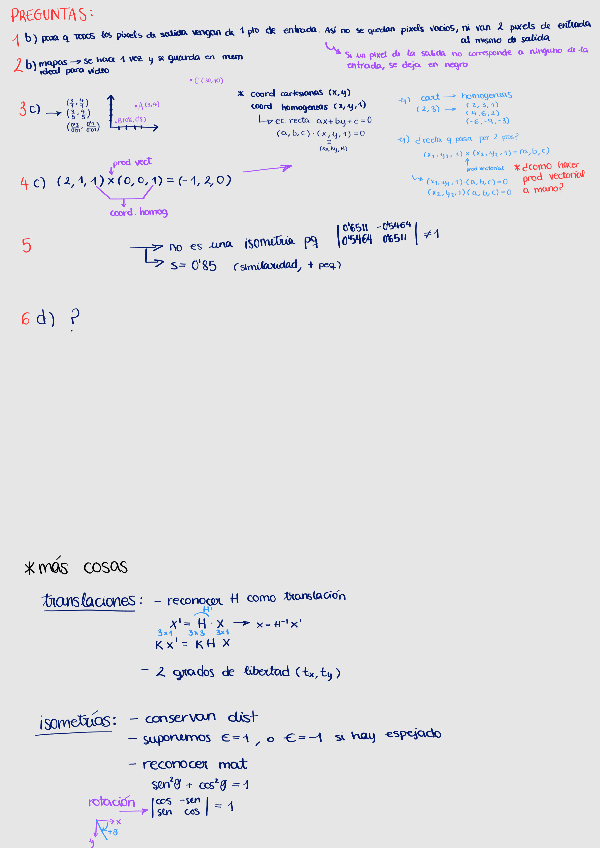 PREGUNTAS:
1 b) para q todos los pixels de salida vengan de 1 pto de entrada. Así no se quedan pixels vacios, ni van 2 pixels de entrada al mismo de salida
↳ Si un pixel de la salida no corresponde a ninguno de la entrada, se deja en negro
2 b) mapas → se hace 1 vez y se guarda en mem
ideal para video
3 c)
* coord cartesianas (x,y)
coord homogeneas (x,y,1)
↳ ec recta ax + by + c = 0
(a,b,c)·(x,y,1) = 0
cart → homogeneas
(2,3) → (2,3,1)
(4,6,2)
(-6,-9,-3)
¿recta q pasa por 2 ptos?
(x1,y1,1) × (x2,y2,1) = (a,b,c)
prod vectorial
(x1,y1,1)·(a,b,c)=0
(x2,y2,1)(a,b,c)=0
* ¿como hacer prod vectorial a mano?
prod vect
4 c) (2,1,1) × (0,0,1) = (-1,2,0)
coord. homog
5 → no es una isometria pq |0'6511 -0'5464
0'5464 0'6511| ≠ 1
↳ s = 0'85 (similaridad, + peq)
6 d) ?
* más cosas
translaciones: - reconocer H como translación
H⁻¹
x' = H · x → x = H⁻¹x'
3x1 3x3 3x1
K x' = K H x
- 2 grados de libertad (tx, ty)
isometrías: - conservan dist
- suponemos ϵ=1, o ϵ=-1 si hay espejado
- reconocer mat
sen²θ + cos²θ = 1
rotación → |cos -sen
sen cos| = 1
x
y +θ